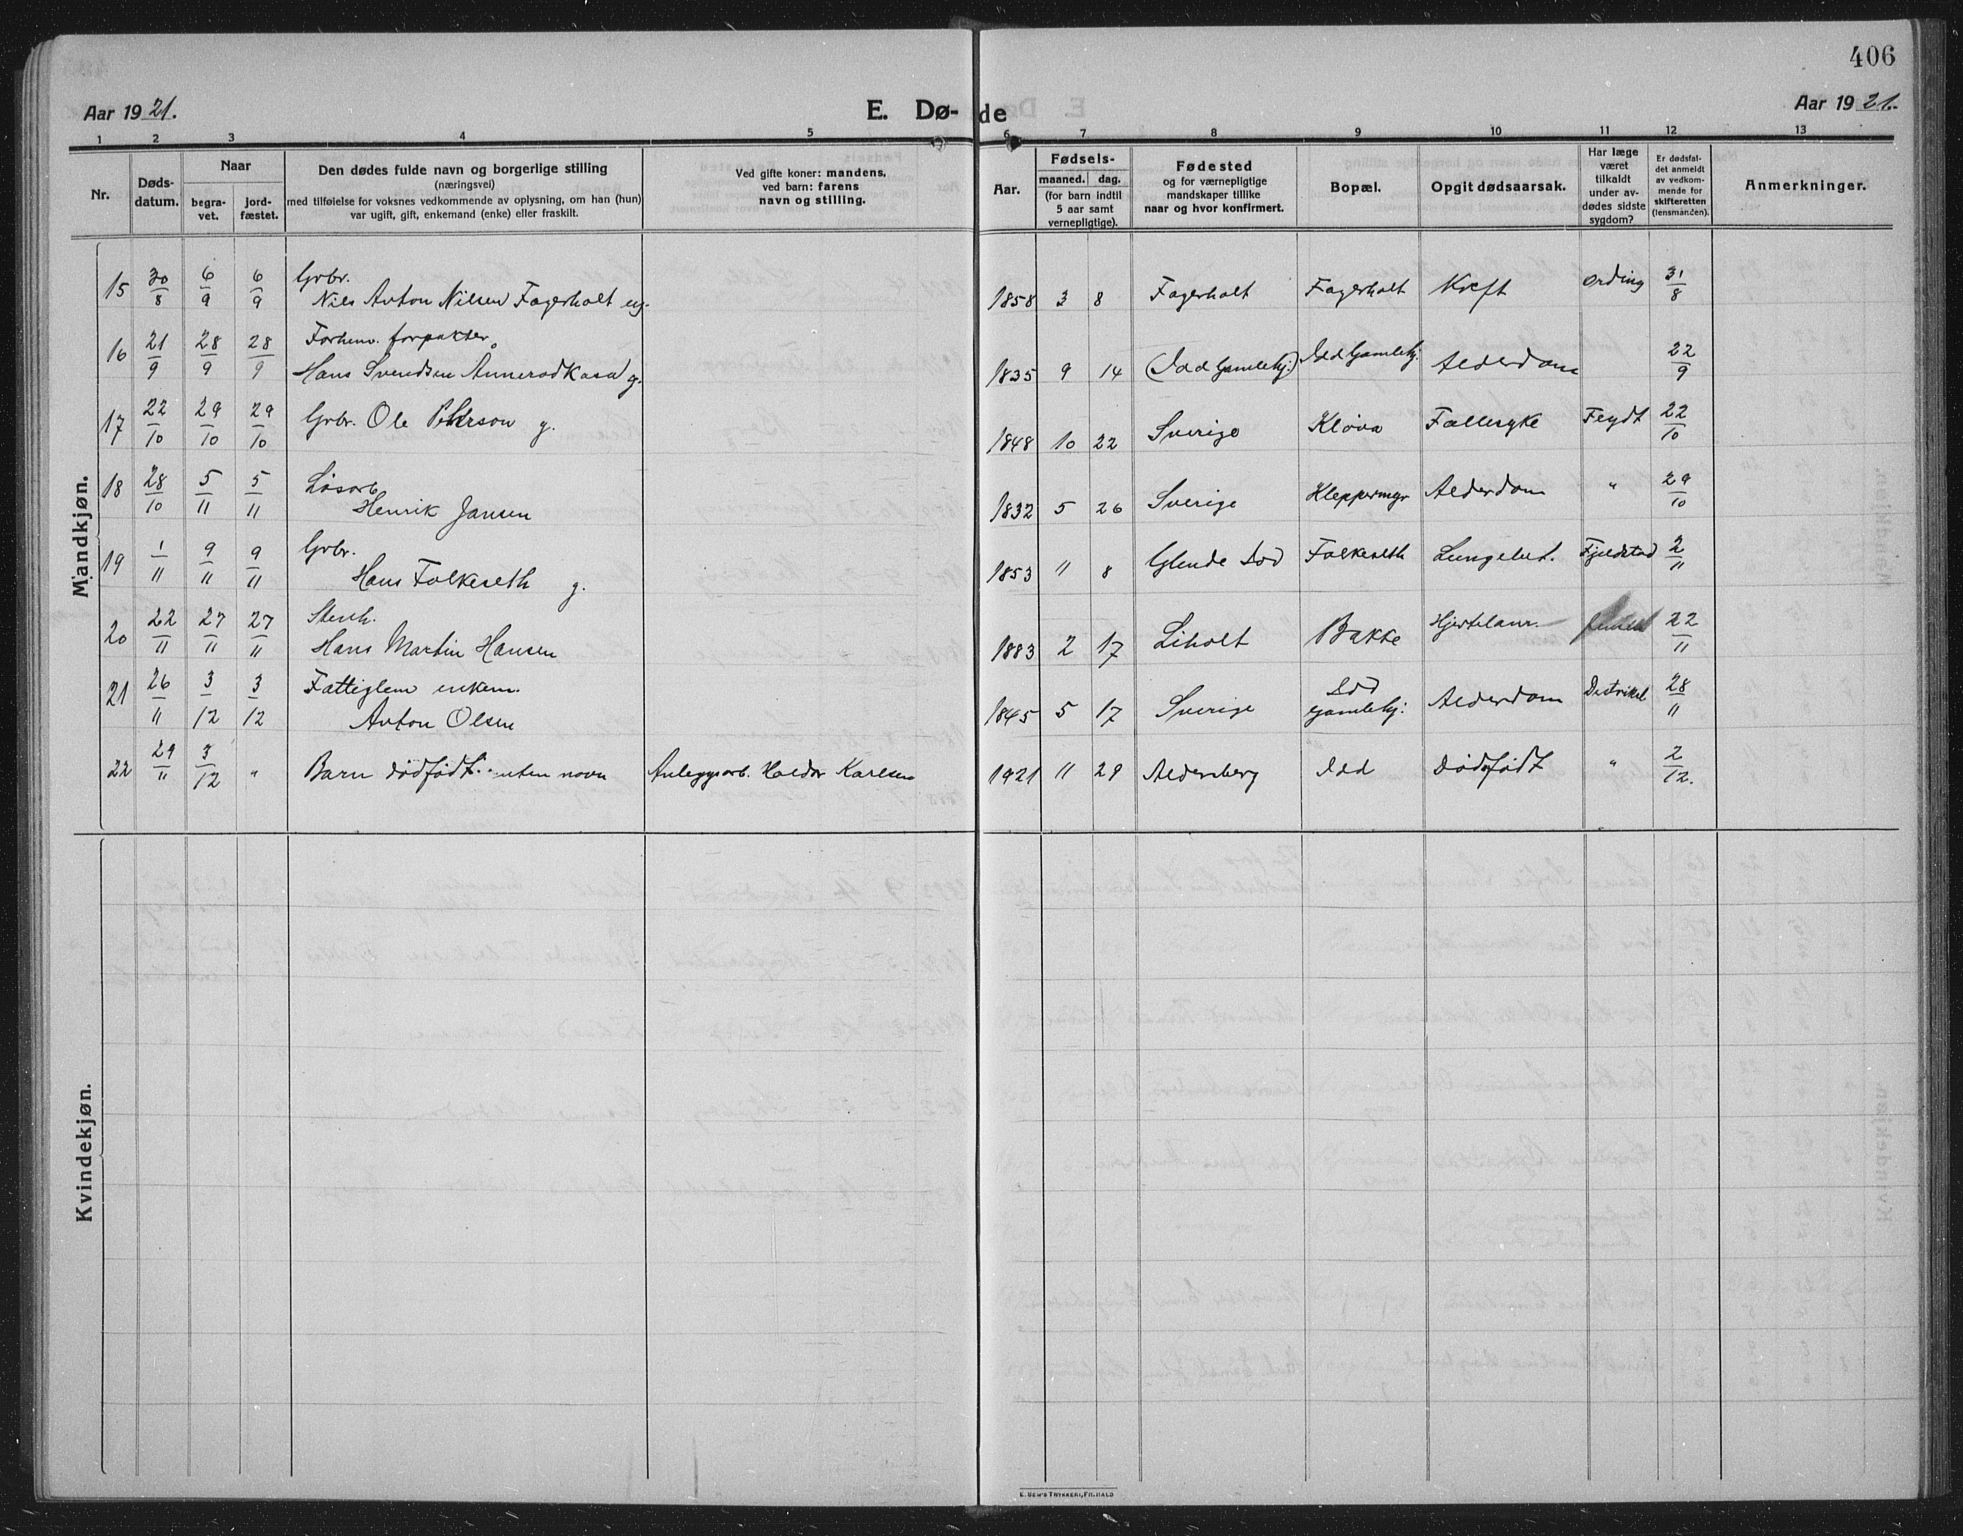 406
Aar 1921.
E. Dø-
de
Aar 1921.
1 2 3 4 5 6 7 8 9 10 11 12 13
Nr.
Døds-
datum.
Naar
begra-
vet.
jord-
fæstet.
Den dødes fulde navn og borgerlige stilling
(næringsvei)
med tilføielse for voksnes vedkommende av oplysning, om han (hun)
var ugift, gift, enkemand (enke) eller fraskilt.
Ved gifte koner: mandens,
ved barn: farens
navn og stilling.
Aar.
Fødsels-
maaned. dag.
(for barn indtil
5 aar samt
vernepligtige).
Fødested
og for værnepligtige
mandskaper tillike
naar og hvor konfirmert.
Bopæl.
Opgit dødsaarsak.
Har læge
været
tilkaldt
under av-
dødes sidste
sygdom?
Er dødsfal-
det anmeldt
av vedkom-
mende for
skifteretten
(lensmanden).
Anmerkninger.
Mandkjøn.
15 30/8 6/9 6/9 Grbr.
Nils Anton Nilsen Fagerholt ug. 1858 3 8 Fagerholt Fagerholt Kræft Ording 31/8
16 21/9 28/9 28/9 Forhenv. forpakter
Hans Svendsen Annerød Kasa g. 1835 9 14 (Idd Gamlekj.) Idd Gamlekj. Alderdom 22/9
17 22/10 29/10 29/10 Grbr. Ole Petterson g. 1848 10 22 Sverige Kløva Fallesyke Feydt 22/10
18 28/10 5/11 5/11 Løsarb.
Henrik Jansen 1832 5 26 Sverige Kleppermyr Alderdom " 29/10
19 1/11 9/11 9/11 Grbr.
Hans Folkeseth g. 1853 11 8 Glende Idd Folkeseth Lungebet. Fjeldstad 2/11
20 22/11 27/11 27/11 Stenh.
Hans Martin Hansen 1883 2 17 Liholt Bakke Hjertelam. 22/11
21 26/11 3/12 3/12 Fattiglem enkem.
Anton Olsen 1845 5 17 Sverige Idd
Gamlekj. Alderdom Distriktsl. 28/11
22 29/11 3/12 " Barn dødfødt. uten navn Anleggsarb. Haldor Karlsen 1921 11 29 Aldersberg Idd Dødsfødt " 2/12.
Kvindekjøn.
E. SEM'S TRYKKERI, FR.HALD